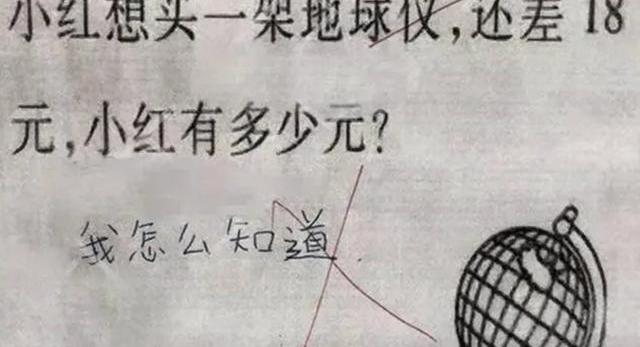 小红想买一架地球仪,还差18
元,小红有多少元?
我怎么知道.